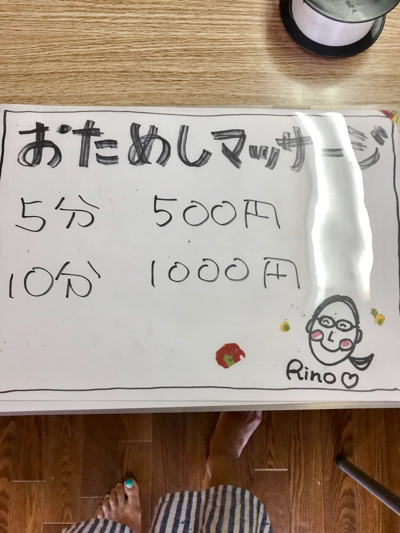 おためしマッサージ
5分 500円
10分 1000円
Rino♡